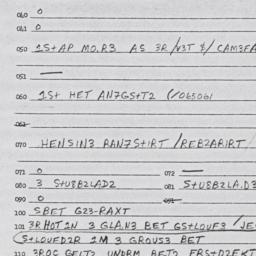 040 0
041 0
050 1S+AP MO.R3 AS 3R /V3T &/ CAM3FA
051 —
060 1S+ HET AN7GS+T2 (/065061
062
070 HENSIN3 RAN7S+IRT /REB2ARIRT /
071 0 072 —
080 3 S+U8B2LAD2 081 S+U8B2LA.D3
090 0 091
100 SBET G23-RAXT
101 3RHOT1N 3 GLA.N3 BET GS+LOUF3 /JE
S+LOUFD2R 1M 3 GROUS3 BET
110 3ROG GEIT2 UNDRM BET2 FRS+D2EKT